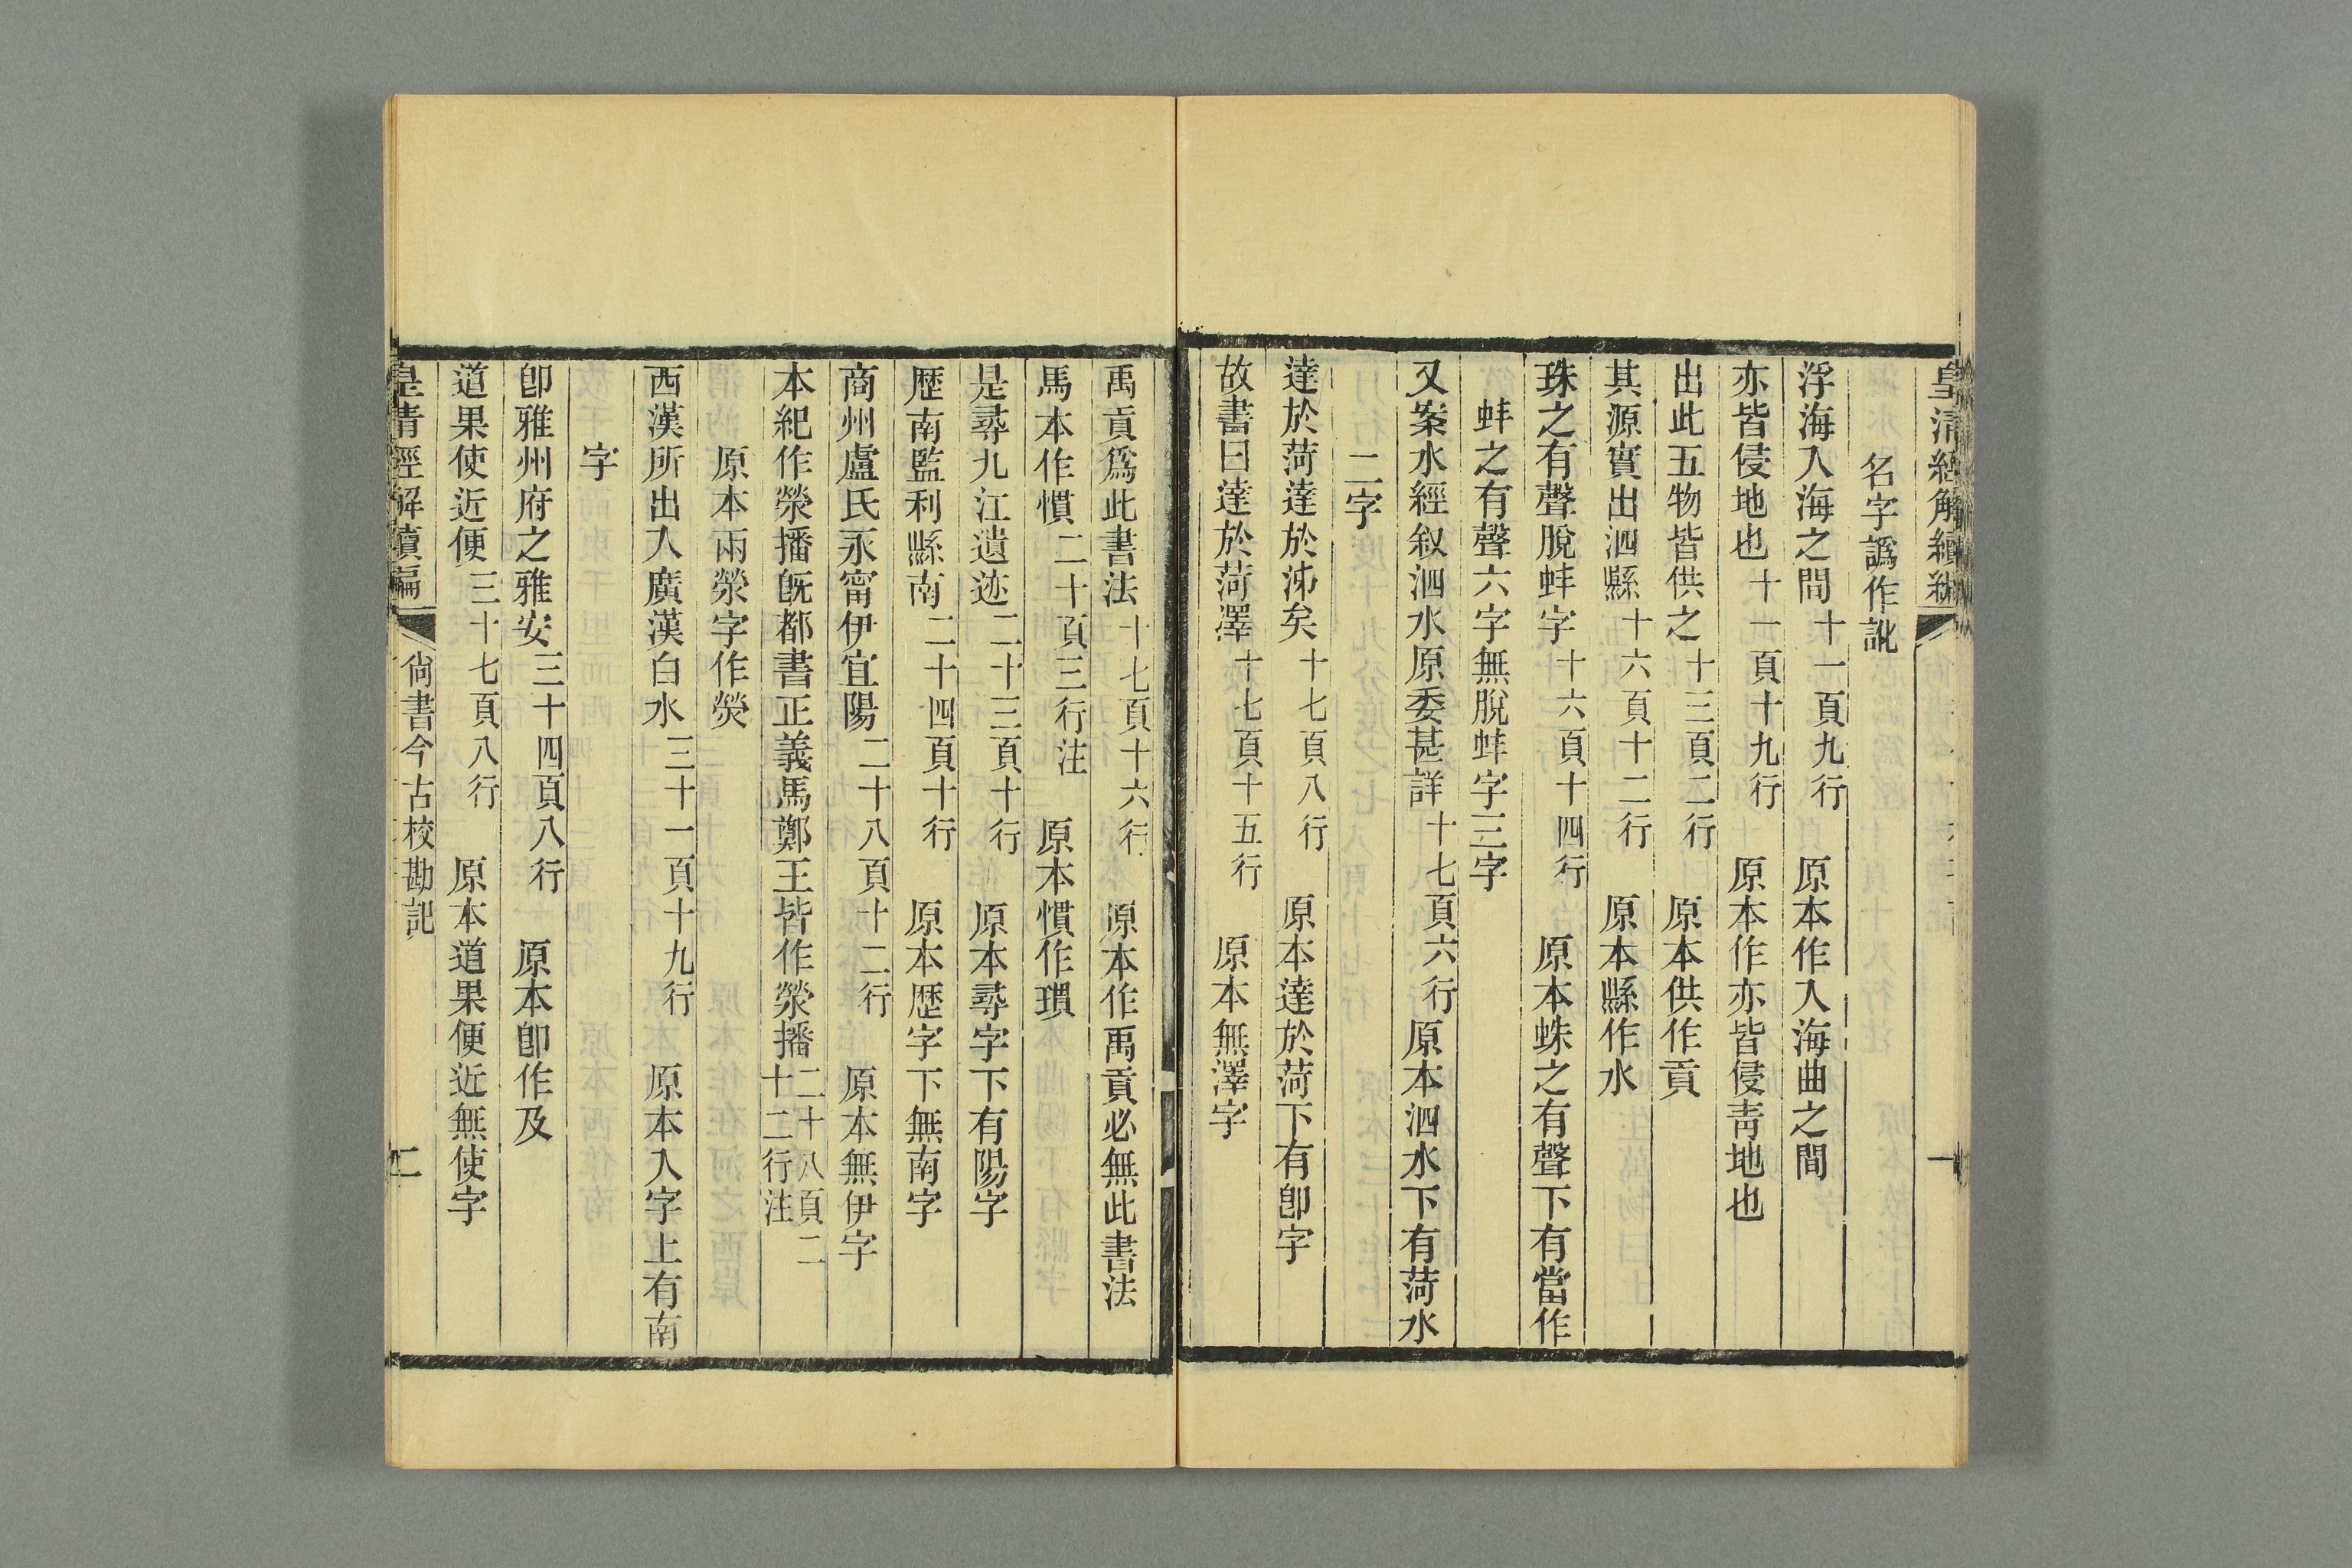 皇清經解續編
一
名字譌作訛
浮海入海之間十一頁九行　原本作入海曲之間
亦皆侵地也十一頁十九行　原本作亦皆侵靑地也
出此五物皆供之十三頁二行　原本供作貢
其源實出泗縣十六頁十二行　原本縣作水
珠之有聲脫蚌字十六頁十四行　原本蛛之有聲下有當作
蚌之有聲六字無脫蚌字三字
又案水經叙泗水原委甚詳十七頁六行原本泗水下有菏水
二字
達於菏達於泲矣十七頁八行　原本達於菏下有卽字
故書曰達於菏澤十七頁十五行　原本無澤字
禹貢爲此書法十七頁十六行　原本作禹貢必無此書法
馬本作慣二十頁三行注　原本慣作瓆
是尋九江遺迹二十三頁十行　原本尋字下有陽字
歷南監利縣南二十四頁十行　原本歷字下無南字
商州盧氏永甯伊宜陽二十八頁十二行　原本無伊字
本紀作滎播旣都書正義馬鄭王皆作滎播二十八頁二十二行注
原本兩滎字作熒
西漢所出入廣漢白水三十一頁十九行　原本入字上有南
字
卽雅州府之雅安三十四頁八行　原本卽作及
道果使近便三十七頁八行　原本道果便近無使字
皇清經解續編　尙書今古校勘記
二